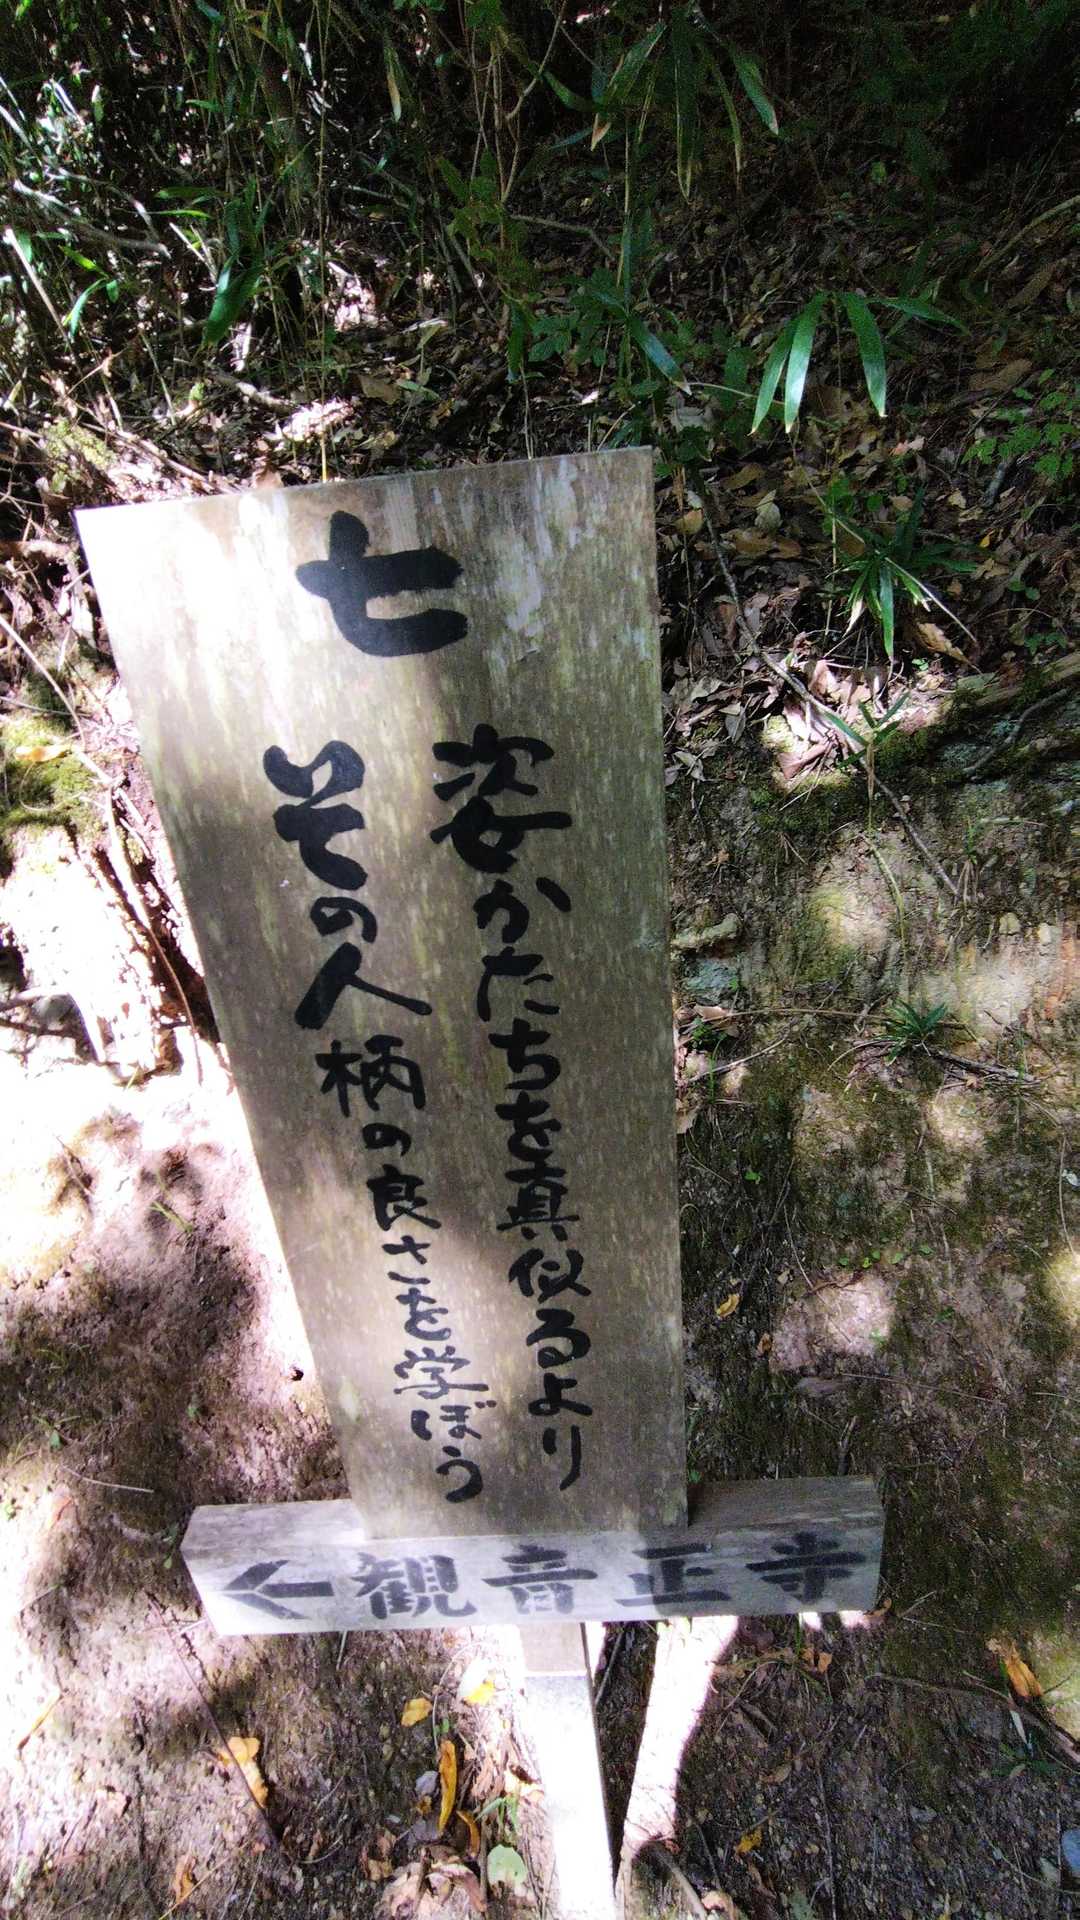 七
姿かたちを真似るより
その人柄の良さを学ぼう
←観音正寺